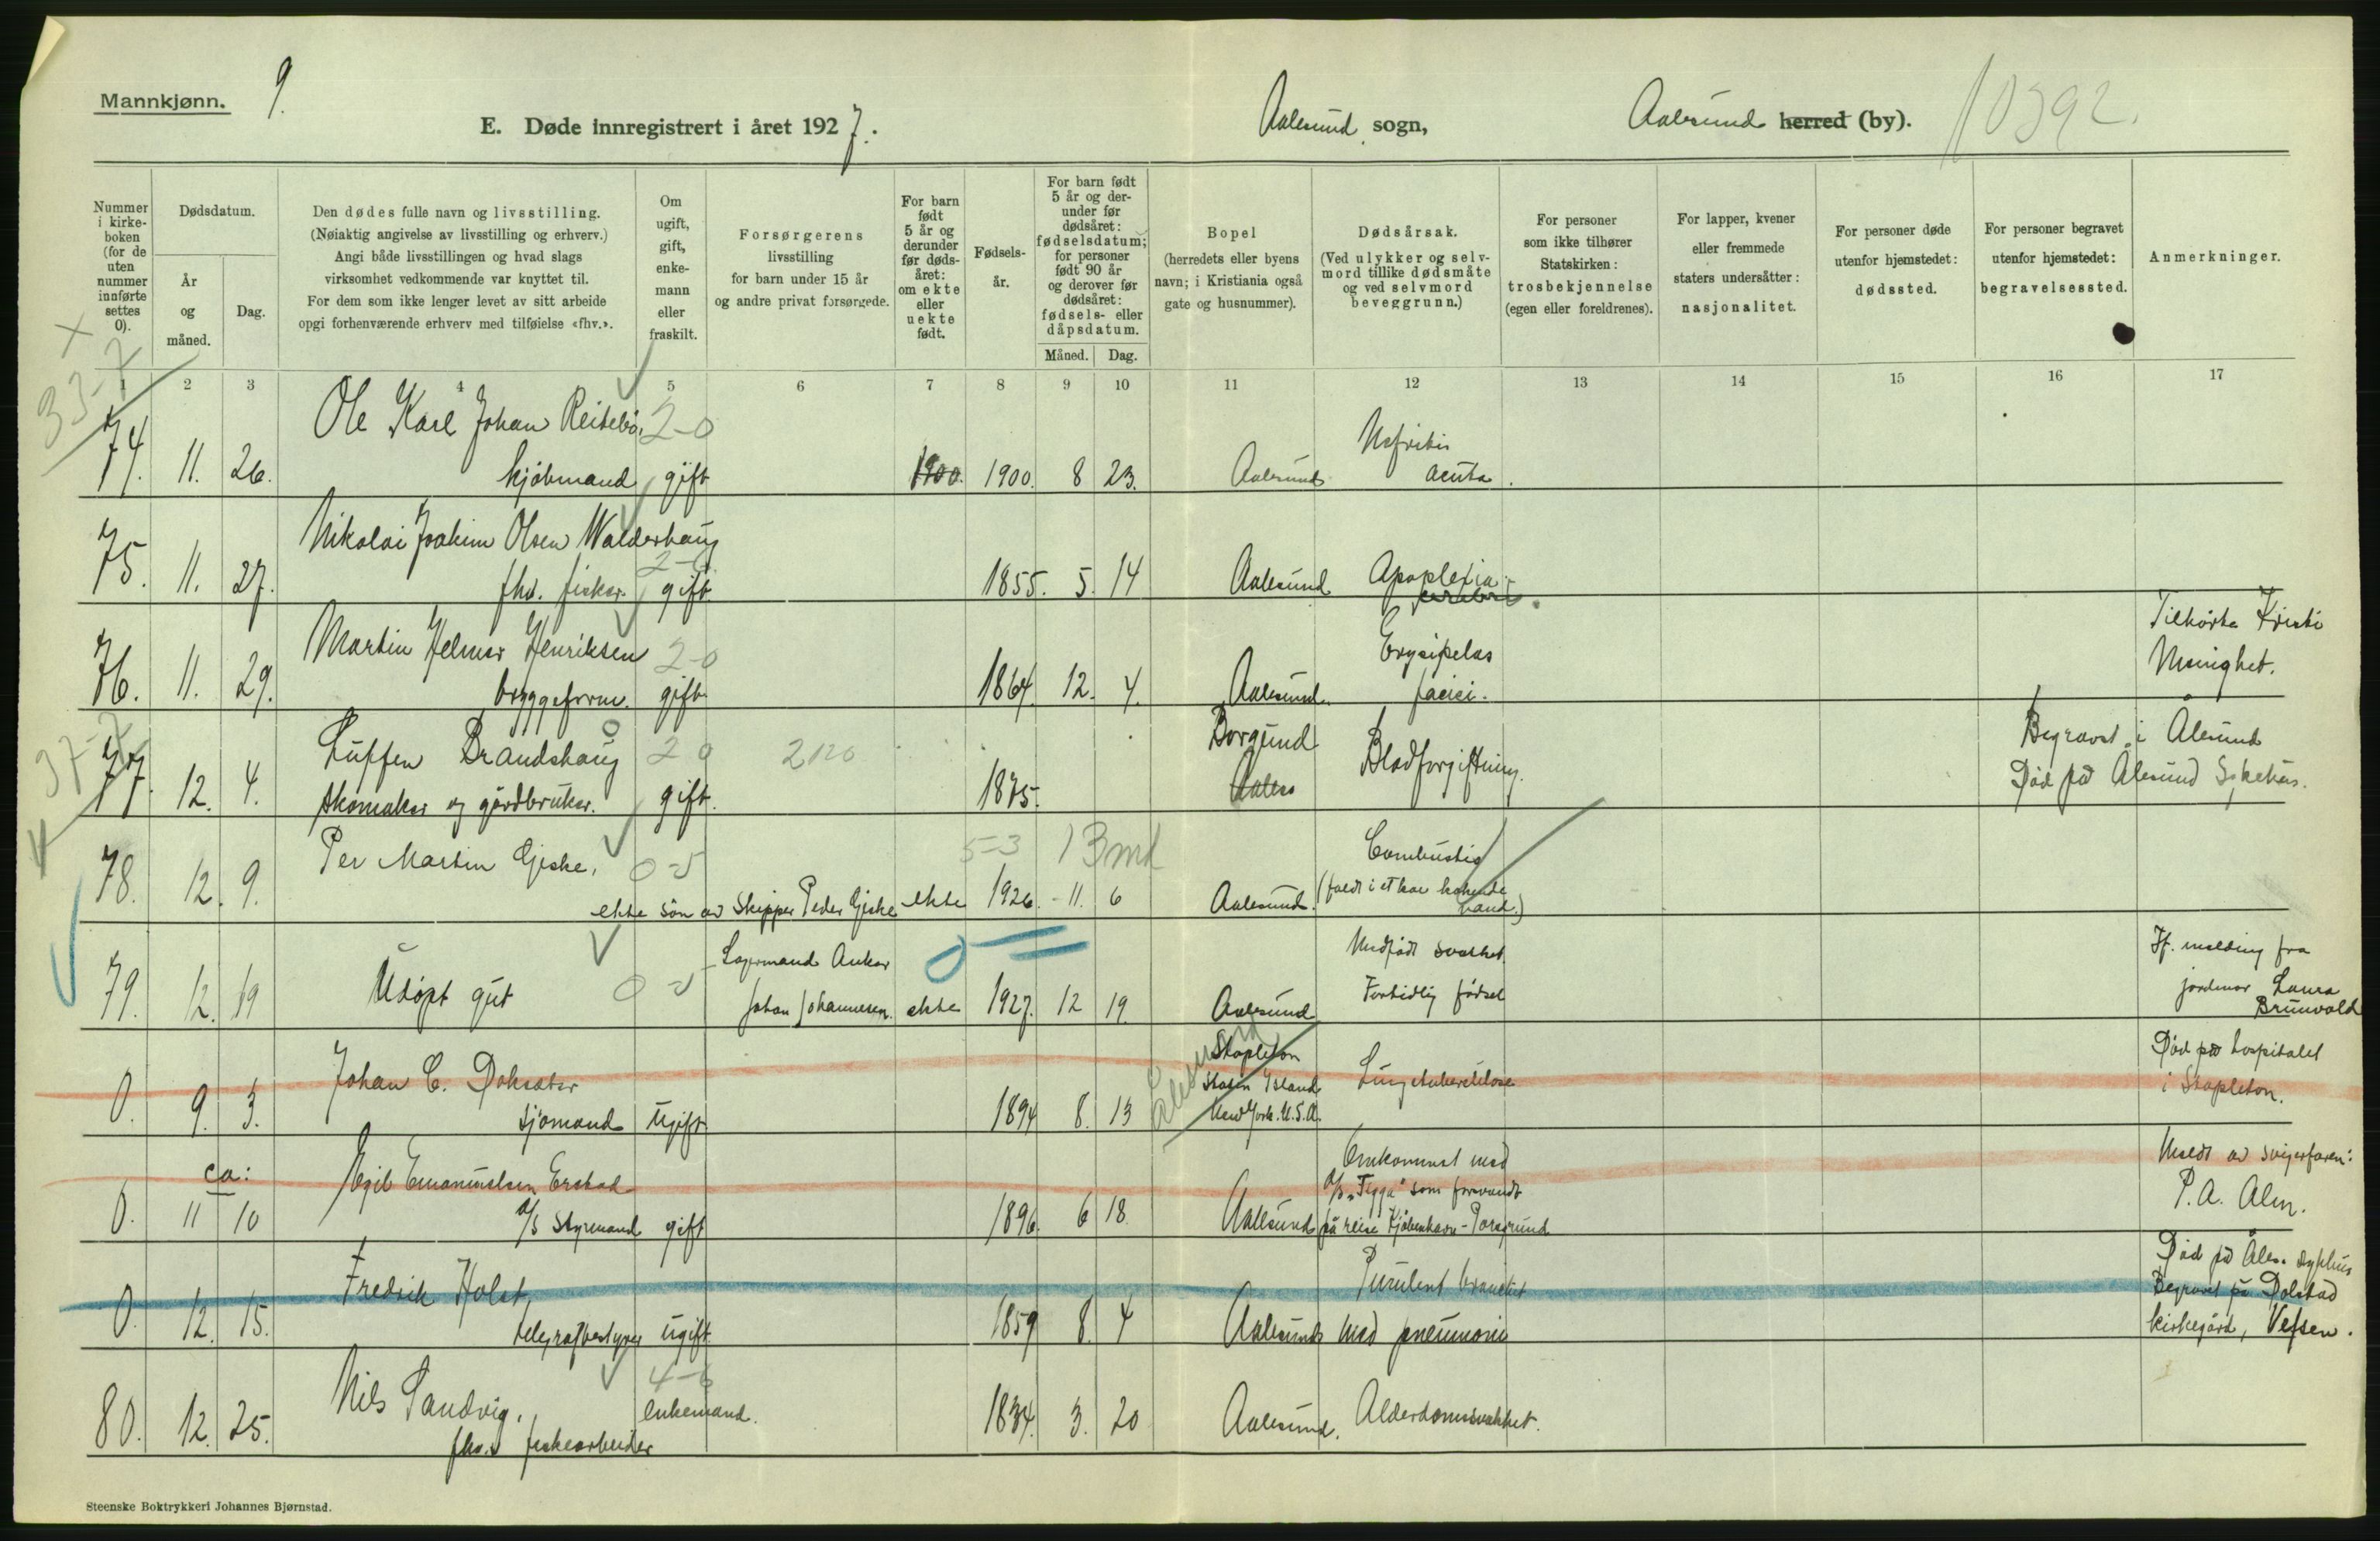 Mannkjønn.
9.
E. Døde innregistrert i året 1927.
Aalesund sogn,
Aalesund herred (by).
10392.
Nummer i kirke-boken (for de uten nummer innførte settes 0).
Dødsdatum.
År og måned.
Dag.
Den dødes fulle navn og livsstilling.
(Nøiaktig angivelse av livsstilling og erhverv.)
Angi både livsstillingen og hvad slags
virksomhet vedkommende var knyttet til.
For dem som ikke lenger levet av sitt arbeide
opgi forhenværende erhverv med tilføielse «fhv.».
Om ugift, gift, enke-mann eller fraskilt.
Forsørgerens
livsstilling
for barn under 15 år
og andre privat forsørgede.
For barn født 5 år og derunder før døds-året: om ekte eller uekte født.
Fødsels-år.
For barn født 5 år og der-under før dødsåret: fødselsdatum; for personer født 90 år og derover før dødsåret: fødsels- eller dåpsdatum.
Måned.
Dag.
Bopel
(herredets eller byens
navn; i Kristiania også
gate og husnummer).
Dødsårsak.
(Ved ulykker og selv-
mord tillike dødsmåte
og ved selvmord
beveggrunn.)
For personer
som ikke tilhører
Statskirken:
trosbekjennelse
(egen eller foreldrenes).
For lapper, kvener
eller fremmede
staters undersåtter:
nasjonalitet.
For personer døde
utenfor hjemstedet:
dødssted.
For personer begravet
utenfor hjemstedet:
begravelsessted.
Anmerkninger.
1 2 3 4 5 6 7 8 9 10 11 12 13 14 15 16 17
Ole Karl Johan Reitebø. 2-0
Nefritis
74. 11. 26. kjøbmand gift 1900. 1900. 8 23. Aalesund acuta.
Nikolai Joakim Olsen Walderhaug
2-0
75. 11. 27. fhv. fisker. gift. 1855. 5. 14 Aalesund Apoplexia
cerebri.
Martin Helmer Henriksen 2-0
Erysipelas
Tilhørte Kristi
Menighet.
76. 11. 29. bryggeform. gift. 1864. 12. 4. Aalesund. faciei.
Luffen Brandshaug 2 0 2120
Borgund
Begravet i Ålesund
77. 12. 4. skomaker og gårdbruker. gift. 1875. Aales Blodforgiftning. Død på Ålesund Sykehus.
Per Martin Giske, 0-5 5-3 13 md
Combustio
78. 12. 9. ekte søn av Skipper Peder Giske ekte 1926. - 11. 6 Aalesund. (faldt i et kar kokende
vand.)
Lagermand Anker
0
Medfødt svakhet.
If. melding fra
79. 12. 19 Udøpt gut 0-5 Johan Johannesen. ekte 1927. 12 19. Aalesund
Fortidlig fødsel
jordmor Laura
Brunvold
Johan C. Doksæter
Ålesund
Stapleton
Staten Island
New York. U.S.A.
Lungetuberkulose
Død på hospitalet
i Stapleton.
0. 9. 3. sjømand ugift 1894 8. 13
ca:
Egil Emanuelsen Erstad
Omkommet med
D/S „Tigga" som forsvandt
Meldt av svigerfaren:
P. A. Alm.
0. 11 10 D/S Styrmand gift 1896. 6 18. Aalesund på reise Kjøbenhavn - Porsgrund
Fredrik Holst,
Purulent bronchit
Død på Åles. sykehus
Begravet på Dolstad
kirkegård, Vefsen.
0. 12. 15. telegrafbestyrer ugift. 1859 8. 4 Aalesund med pneumoni
Nils Sandvig. 4-6
80. 12. 25. fhv. fiskearbeider enkemand. 1834. 3. 20 Aalesund. Alderdomssvakhet.
Steenske Boktrykkeri Johannes Bjørnstad.